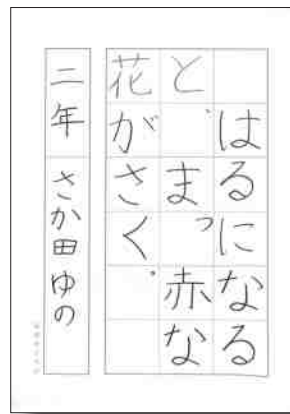 はるになる
と、まっ赤な
花がさく。
二年 さか田ゆの